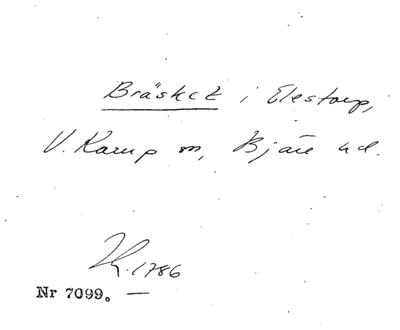 Bräsket i Elestorp,
V. Karup sn, Bjäre hd.
Kh. 1786
Nr 7099. —